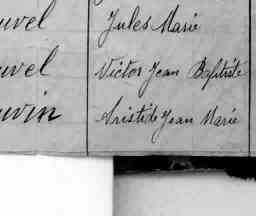 uvel Jules Marie
uvel Victor Jean Baptiste
uvin Aristide Jean Marie